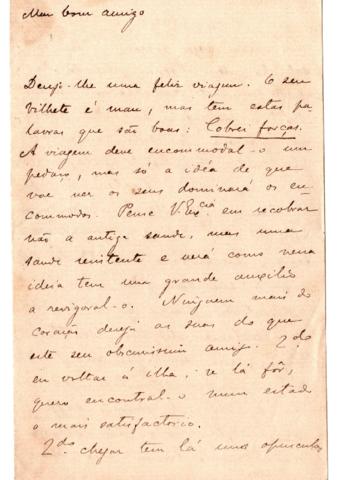 Meu bom amigo
Desejo-lhe uma feliz viagem. O seu
bilhete é mau, mas tem estas pa-
lavras que são boas: Cobrei forças.
A viagem deve encommodal-o um
pedaço, mas só a idéa de que
vae ver os seus dominará os en-
commodos. Pense V. Excia em recobrar
não a antiga saude, mas uma
saude resistente e verá como nessa
ideia tem uma grande auxilio
a revigoral-o. Ninguem mais do
coração deseja as suas do que
este seu obscurissimo amigo. Qdo
eu voltar á ilha, se lá fôr,
quero encontral-o num estado
o mais satisfactorio.
Qdo chegar tem lá uns opusculos